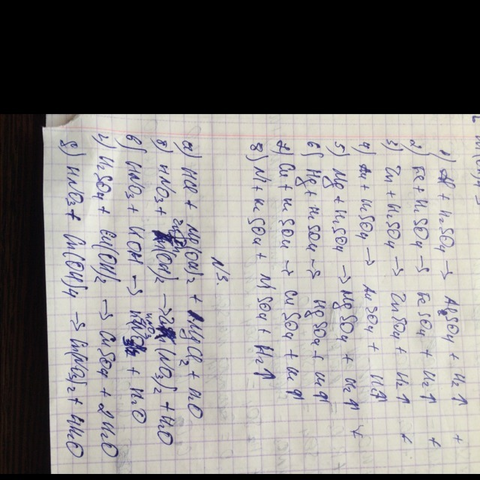 1) Al + H₂SO₄ → AlSO₄ + H₂↑ +
2) Fe + H₂SO₄ → FeSO₄ + H₂↑ +
3) Zn + H₂SO₄ → ZnSO₄ + H₂↑ +
4) Au + H₂SO₄ → AuSO₄ + H₂↑
5) Mg + H₂SO₄ → MgSO₄ + H₂↑ +
6) Hg + H₂SO₄ → HgSO₄ + H₂↑
7) Cu + H₂SO₄ → CuSO₄ + H₂↑
8) Ni + H₂SO₄ + NiSO₄ + H₂↑
N3.
а) HCl + (OH)₂ + MgCl₂ H₂O
б) HNO₃ + (OH)₂ → (NO₃)₂ + H₂O
в) HNO₃ + KOH → + H₂O
г) H₂SO₄ + Cu(OH)₂ → CuSO₄ + 2H₂O
HNO₃ + (OH)₄ → (NO₃)₂ + 4H₂O